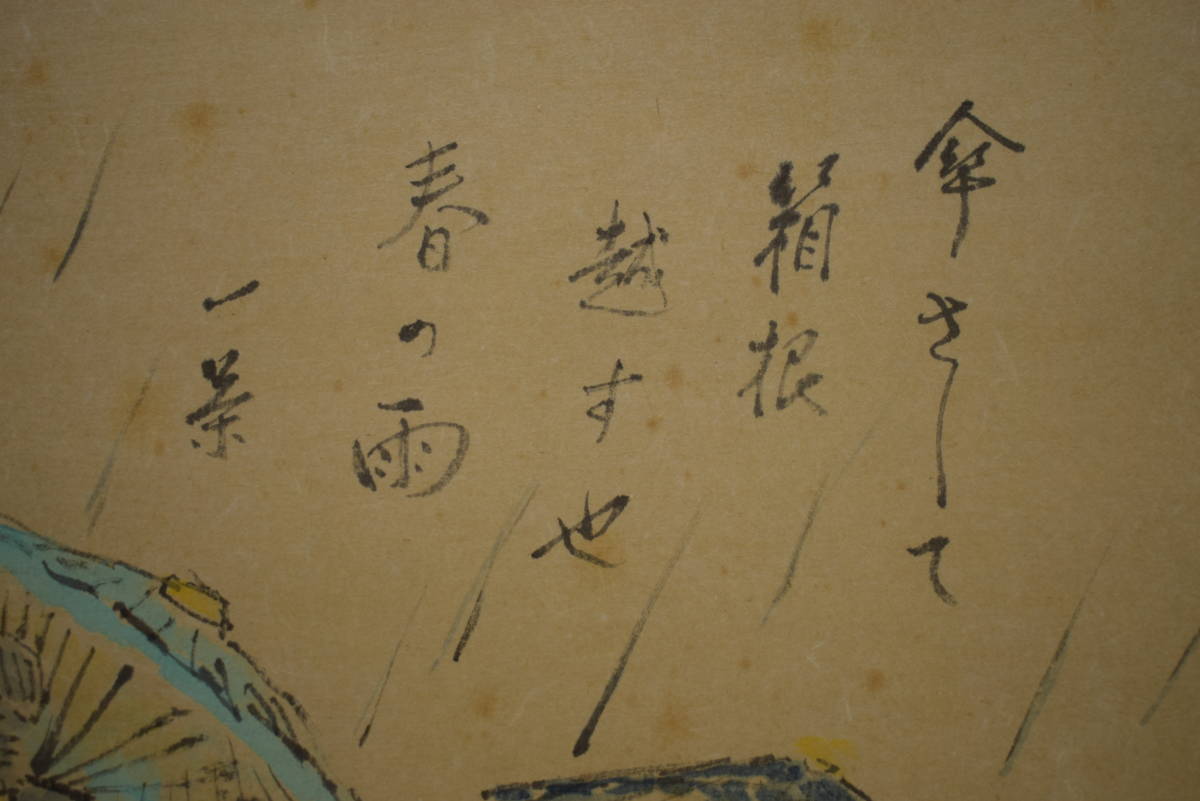 傘さして
箱根
越す也
春の雨
一景